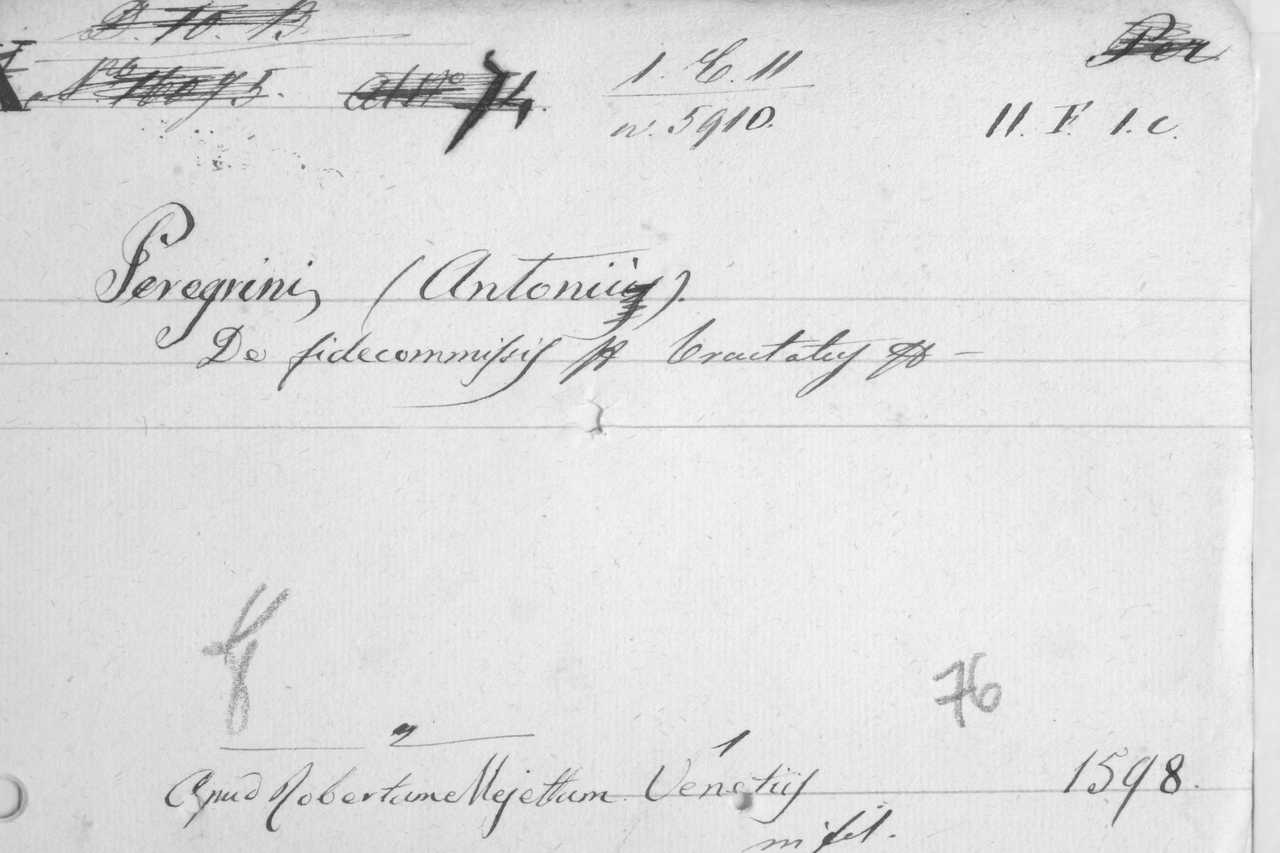 B. 10. B
Per
No 16075. 74.
1. E. 11
n. 5910.
11. F. 1. c.
Peregrini, (Antonii).
De fidecommissis Tractatus
76
2 1
Apud Robertum Mejettum Venetiis 1598.
in fol.